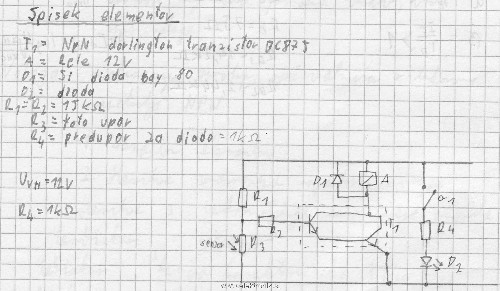 Spisek elementov
T1= NPN darlington tranzistor BC875
A= Rele 12V
D1= Si dioda bay 80
D2= dioda
R1=R2= 15kΩ
R3= foto upor
R4= predupor za diodo = 1kΩ
UVH=12V
R4=1kΩ
R1
R2
R3
D1
A
T1
a1
R4
D2